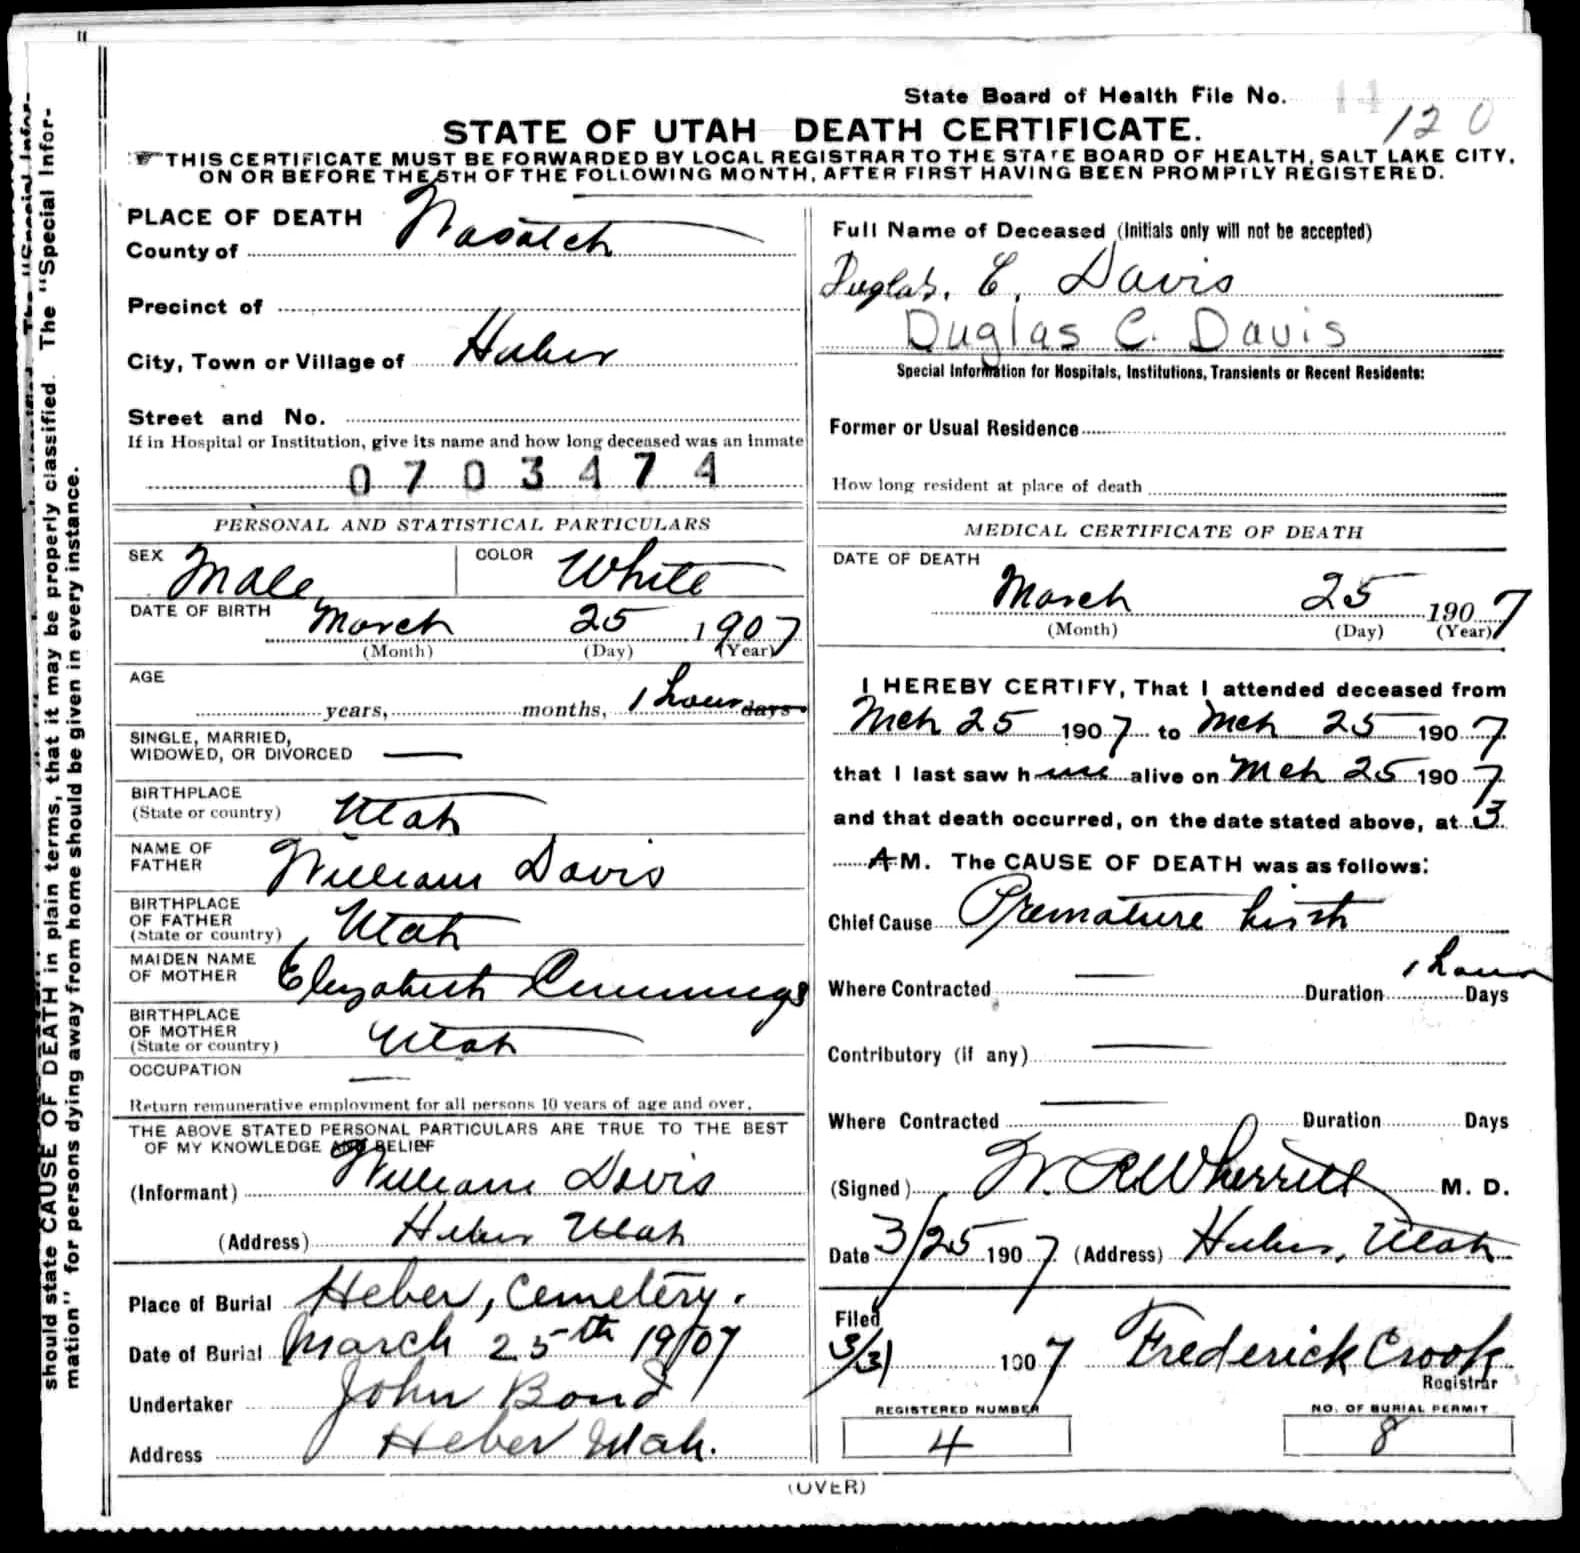 State Board of Health File No. 11
120
STATE OF UTAH DEATH CERTIFICATE.
THIS CERTIFICATE MUST BE FORWARDED BY LOCAL REGISTRAR TO THE STATE BOARD OF HEALTH, SALT LAKE CITY,
ON OR BEFORE THE 5TH OF THE FOLLOWING MONTH, AFTER FIRST HAVING BEEN PROMPTLY REGISTERED.
PLACE OF DEATH
County of Wasatch
Precinct of
City, Town or Village of Heber
Street and No.
If in Hospital or Institution, give its name and how long deceased was an inmate
0703474
PERSONAL AND STATISTICAL PARTICULARS
SEX Male COLOR White
DATE OF BIRTH March 25 1907
(Month) (Day) (Year)
AGE
years, months, 1 hour days
SINGLE, MARRIED,
WIDOWED, OR DIVORCED —
BIRTHPLACE
(State or country) Utah
NAME OF
FATHER William Davis
BIRTHPLACE
OF FATHER
(State or country) Utah
MAIDEN NAME
OF MOTHER Elizabeth Cummings
BIRTHPLACE
OF MOTHER
(State or country) Utah
OCCUPATION —
Return remunerative employment for all persons 10 years of age and over.
THE ABOVE STATED PERSONAL PARTICULARS ARE TRUE TO THE BEST
OF MY KNOWLEDGE AND BELIEF
(Informant) William Davis
(Address) Heber Utah
Place of Burial Heber, Cemetery.
Date of Burial March 25th 1907
Undertaker John Bond
Address Heber Utah.
Full Name of Deceased (Initials only will not be accepted)
Duglas. C. Davis
Duglas C. Davis
Special Information for Hospitals, Institutions, Transients or Recent Residents:
Former or Usual Residence
How long resident at place of death
MEDICAL CERTIFICATE OF DEATH
DATE OF DEATH
March 25 1907
(Month) (Day) (Year)
I HEREBY CERTIFY, That I attended deceased from
Mch 25 1907 to Mch 25 1907
that I last saw him alive on Mch 25 1907
and that death occurred, on the date stated above, at 3
A M. The CAUSE OF DEATH was as follows:
Chief Cause Premature birth
Where Contracted — Duration 1 hour Days
Contributory (if any) —
Where Contracted — Duration Days
(Signed) W. R Wherritt M. D.
Date 3/25 1907 (Address) Heber, Utah
Filed
3/31 1907 Frederick Crook
Registrar
REGISTERED NUMBER
4
NO. OF BURIAL PERMIT
8
(OVER)
should state CAUSE OF DEATH in plain terms, that it may be properly classified. The "Special Infor-
mation" for persons dying away from home should be given in every instance.